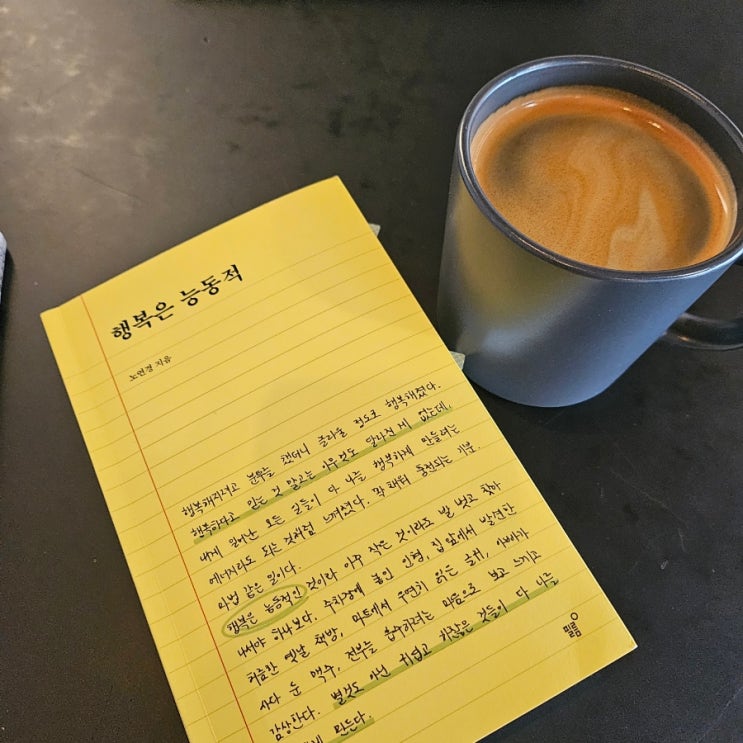 행복은 능동적
노연경 지음
행복해지려고 분투를 했더니 놀라울 정도로 행복해졌다.
행복하다고 믿는 것 말고는 아무것도 달라진 게 없는데,
내게 일어난 모든 일들이 다 나를 행복하게 만들려는
에너지라도 되는 것처럼 느껴졌다. 꽉 채워 충전되는 기분.
마법 같은 일이다.
행복은 능동적인 것이라 아주 작은 것이라도 발 벗고 찾아
나서야 하나보다. 수취장에 놓인 인형, 집 앞에서 발견한
허름한 옛날 책방, 마트에서 우연히 맡은 냄새, 아빠가
사다 둔 맥주. 전부를 흡수하려는 마음으로 보고 느끼고
감상한다. 별것도 아닌 귀엽고 하찮은 것들이 다 나를
만든다.
필름